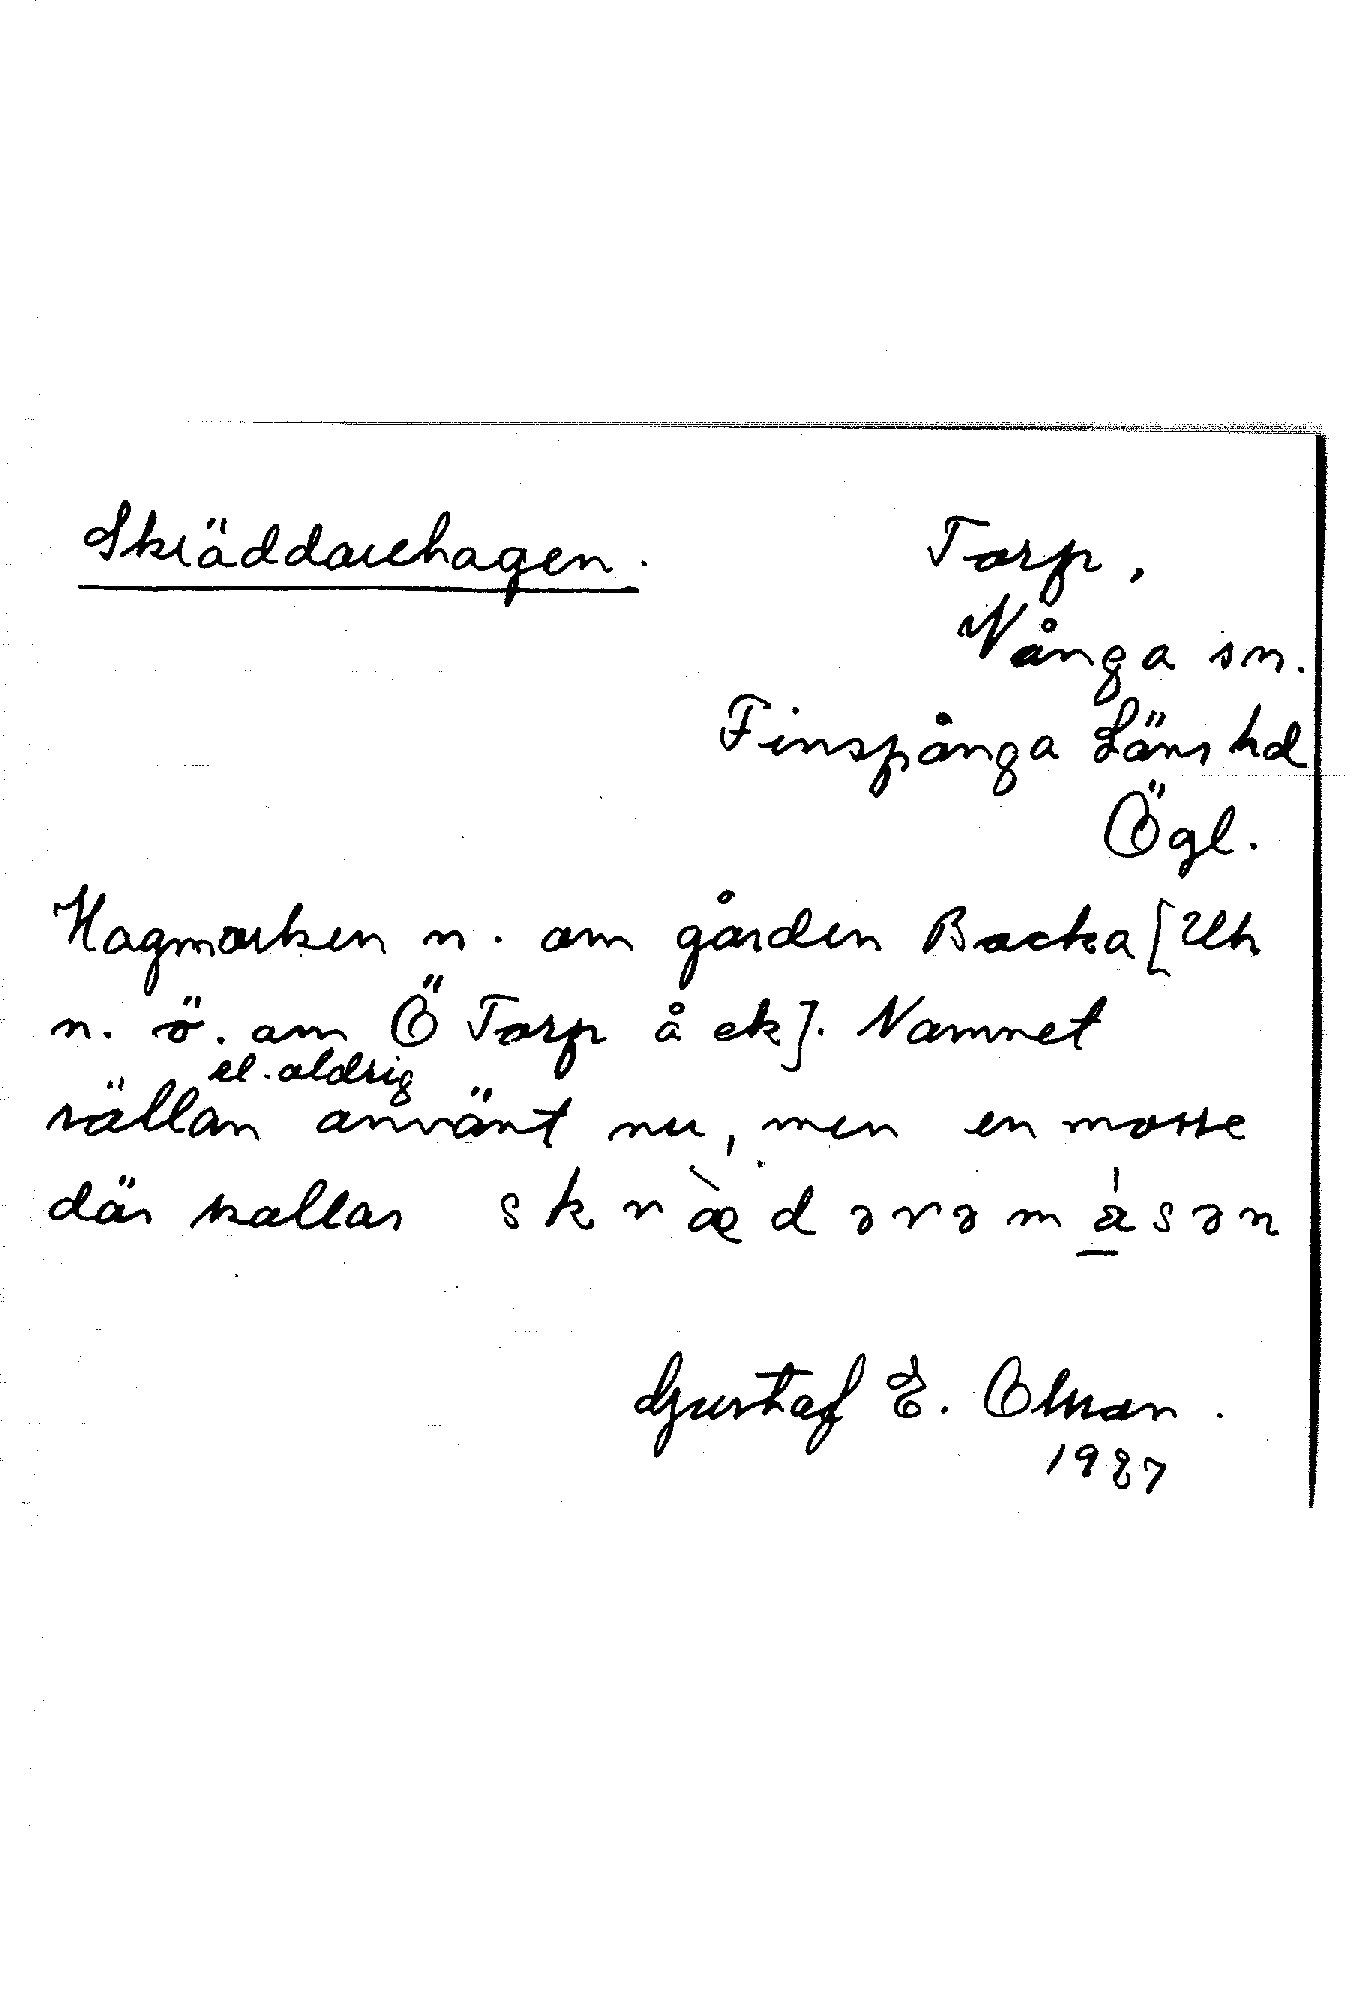 Skräddarehagen.
Torp,
Vånga sn.
Finspånga Läns hd
Ögl.
Hagmarken n. om gården Backa [Uh
n. ö. om Ö Torp å ek]. Namnet
sällan el. aldrig använt nu, men en mosse
där kallas skræ̀dərəmåsən
Gustaf E. Olsson.
1927